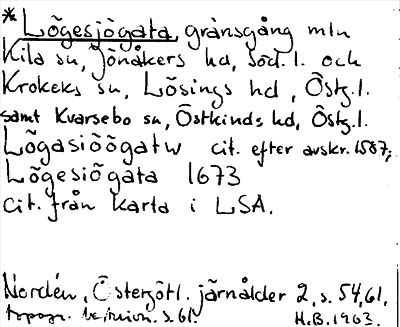 * Lõgesjögata, gränsgång mln
Kila sn, Jönåkers hd, Söd.l. och
Krokeks sn, Lösings hd, Östg.l.
samt Kvarsebo sn, Östkinds hd, Östg.l.
Lõgasiöögatw cit. efter avskr. 1587;
Lõgesiögata 1673
cit. från karta i LSA.
Nordén, Östergötl. järnålder 2, s. 54, 61.
topogr. s. 61. H.B. 1963.